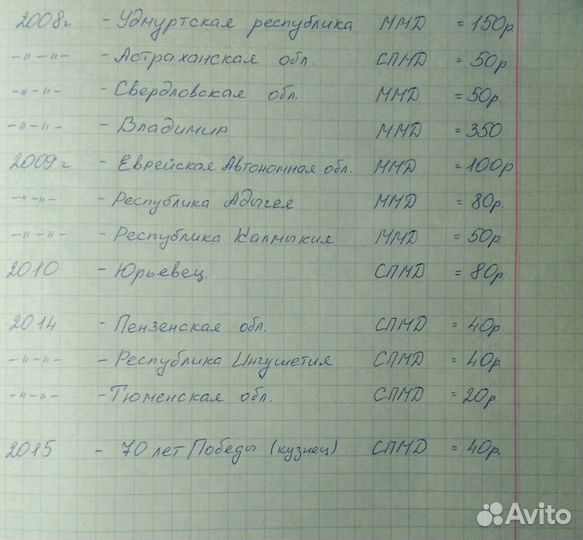 2008г - Удмуртская республика ММД = 150р
-"-"- - Астраханская обл. СПМД = 50р.
-"-"- - Свердловская обл. ММД = 50р.
-"-"- - Владимир ММД = 350
2009г - Еврейская Автономная обл. ММД = 100р
-"-"- - Республика Адыгея ММД = 80р.
-"-"- - Республика Калмыкия ММД = 50р.
2010 - Юрьевец. СПМД = 80р
2014 - Пензенская обл. СПМД = 40р
-"-"- - Республика Ингушетия СПМД = 40р.
-"-"- - Тюменская обл. СПМД = 20р.
2015 - 70 лет Победы (кузнец) СПМД = 40р.
Avito